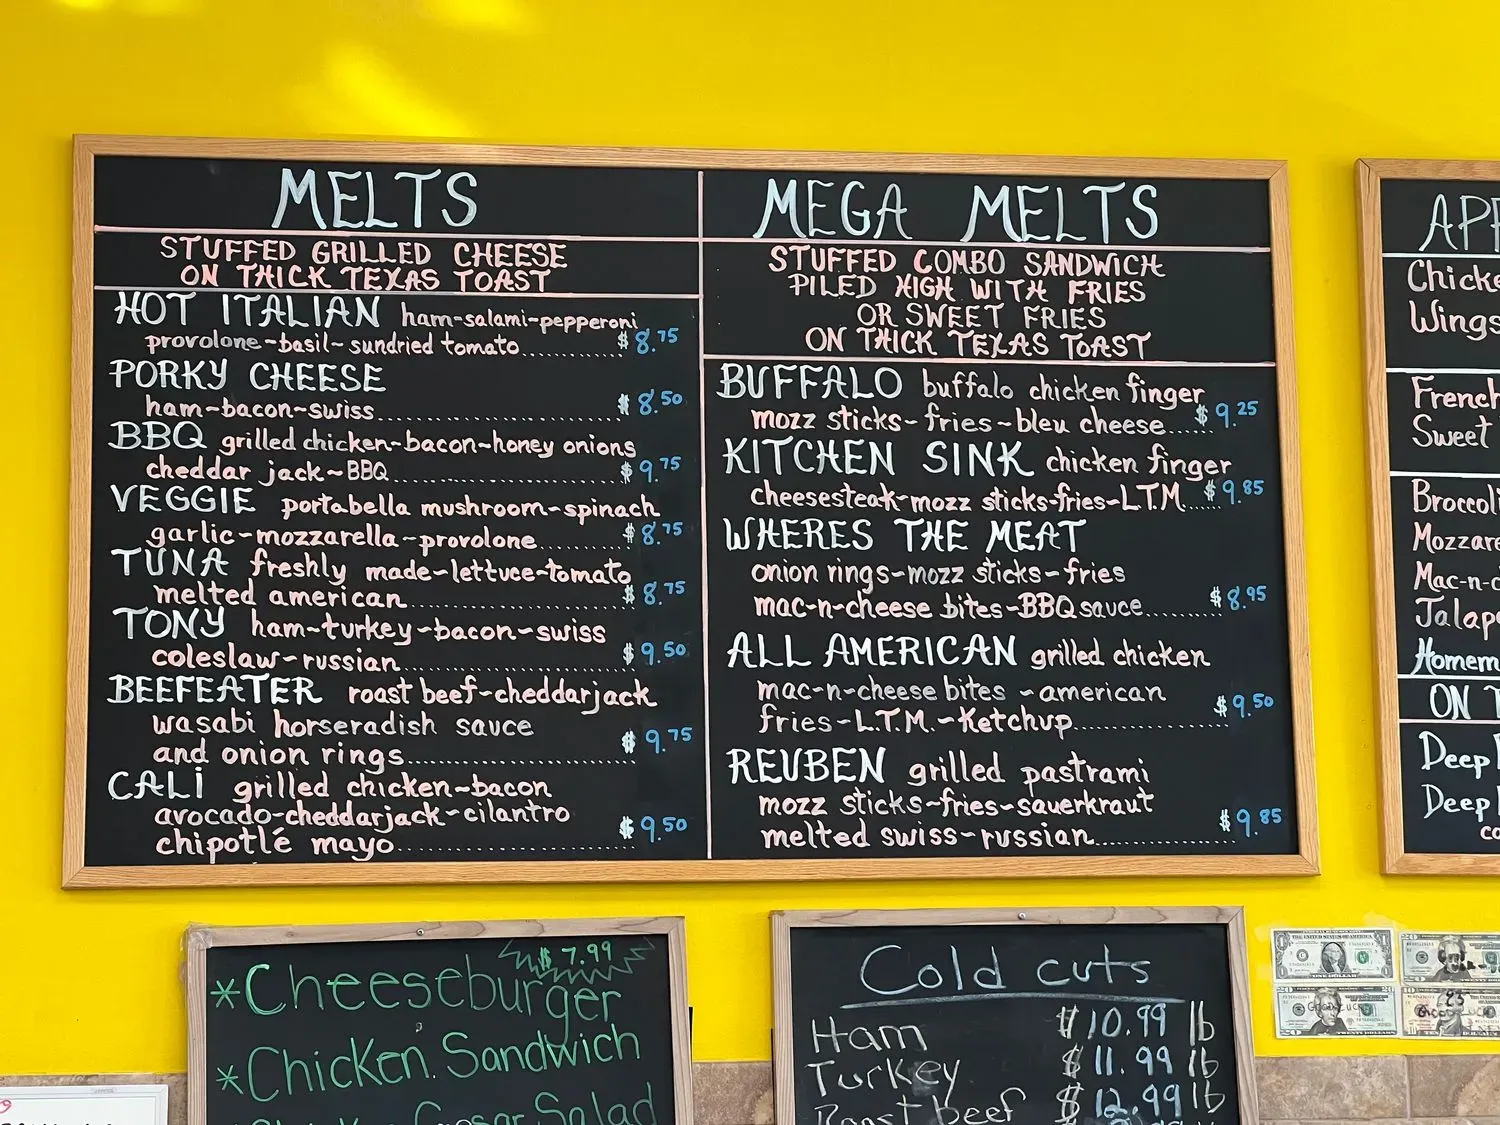 MELTS
STUFFED GRILLED CHEESE
ON THICK TEXAS TOAST
HOT ITALIAN ham-salami-pepperoni
provolone-basil-sundried tomato........ $8.75
PORKY CHEESE
ham-bacon-swiss........ $8.50
BBQ grilled chicken-bacon-honey onions
cheddar jack-BBQ........ $9.75
VEGGIE portabella mushroom-spinach
garlic-mozzarella-provolone........ $8.75
TUNA freshly made-lettuce-tomato
melted american........ $8.75
TONY ham-turkey-bacon-swiss
coleslaw-russian........ $9.50
BEEFEATER roast beef-cheddarjack
wasabi horseradish sauce
and onion rings........ $9.75
CALI grilled chicken-bacon
avocado-cheddarjack-cilantro
chipotlé mayo........ $9.50
MEGA MELTS
STUFFED COMBO SANDWICH
PILED HIGH WITH FRIES
OR SWEET FRIES
ON THICK TEXAS TOAST
BUFFALO buffalo chicken finger
mozz sticks-fries-bleu cheese..... $9.25
KITCHEN SINK chicken finger
cheesesteak-mozz sticks-fries-L.T.M..... $9.85
WHERES THE MEAT
onion rings-mozz sticks-fries
mac-n-cheese bites-BBQ sauce........ $8.95
ALL AMERICAN grilled chicken
mac-n-cheese bites -american
fries-L.T.M.-Ketchup........ $9.50
REUBEN grilled pastrami
mozz sticks-fries-sauerkraut
melted swiss-russian........ $9.85
APP
Chicke
Wings
French
Sweet
Broccoli
Mozzare
Mac-n-c
Jalape
Homem
ON T
Deep
Deep
co
$7.99
*Cheeseburger
*Chicken Sandwich
Salad
Cold cuts
Ham $10.99 lb
Turkey $11.99 lb
Roast beef $12.99 lb